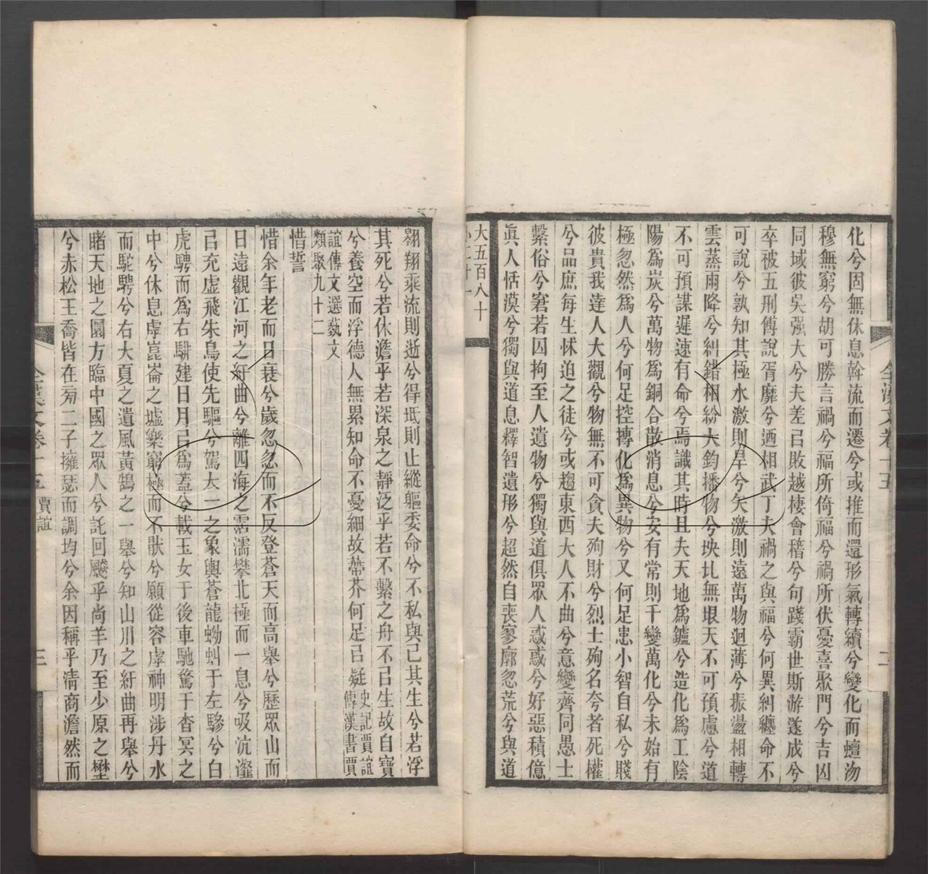 化兮固無休息斡流而遷兮或推而還形氣轉續兮變化而蟺沕
穆無窮兮胡可勝言禍兮福所倚福兮禍所伏憂喜聚門兮吉凶
同域彼吳强大兮夫差㠯敗越棲會稽兮句踐霸世斯游遂成兮
卒被五刑傅說胥靡兮迺相武丁夫禍之與福兮何異糾纆命不
可說兮孰知其極水激則旱兮矢激則遠萬物迴薄兮振盪相轉
雲蒸雨降兮糾錯相紛大鈞播物兮坱圠無垠天不可預慮兮道
不可預謀遲速有命兮焉識其時且夫天地爲鑪兮造化爲工陰
陽爲炭兮萬物爲銅合散消息兮安有常則千變萬化兮未始有
極忽然爲人兮何足控摶化爲異物兮又何足患小智自私兮賤
彼貴我達人大觀兮物無不可貪夫殉財兮烈士殉名夸者死權
兮品庶每生怵迫之徒兮或趨東西大人不曲兮意變齊同愚士
繫俗兮窘若囚拘至人遺物兮獨與道俱眾人惑惑兮好惡積億
眞人恬漠兮獨與道息釋智遺形兮超然自喪寥廓忽荒兮與道
大五百八十
翱翔乘流則逝兮得坻則止縱軀委命兮不私與己其生兮若浮
其死兮若休澹乎若深泉之靜泛乎若不繫之舟不㠯生故自寶
兮養空而浮德人無累知命不憂細故蔕芥何足㠯疑史記賈誼傳漢書賈
誼傳文選蓺文類聚九十二
惜誓
惜余年老而日衰兮歲忽忽而不反登蒼天而高舉兮歷眾山而
日遠觀江河之紆曲兮離四海之霑濡攀北極而一息兮吸沆瀣
㠯充虛飛朱鳥使先驅兮駕太一之象輿蒼龍蚴虯于左驂兮白
虎騁而爲右騑建日月㠯爲蓋兮載玉女于後車馳騖于杳冥之
中兮休息虖崑崙之墟樂窮極而不猒兮願從容虖神明涉丹水
而駝騁兮右大夏之遺風黃鵠之一舉兮知山川之紆曲再舉兮
睹天地之圜方臨中國之眾人兮託回飈乎尚羊乃至少原之壄
兮赤松王喬皆在㫄二子擁瑟而調均兮余因稱乎清商澹然而
全漢文卷十五 賈誼
三